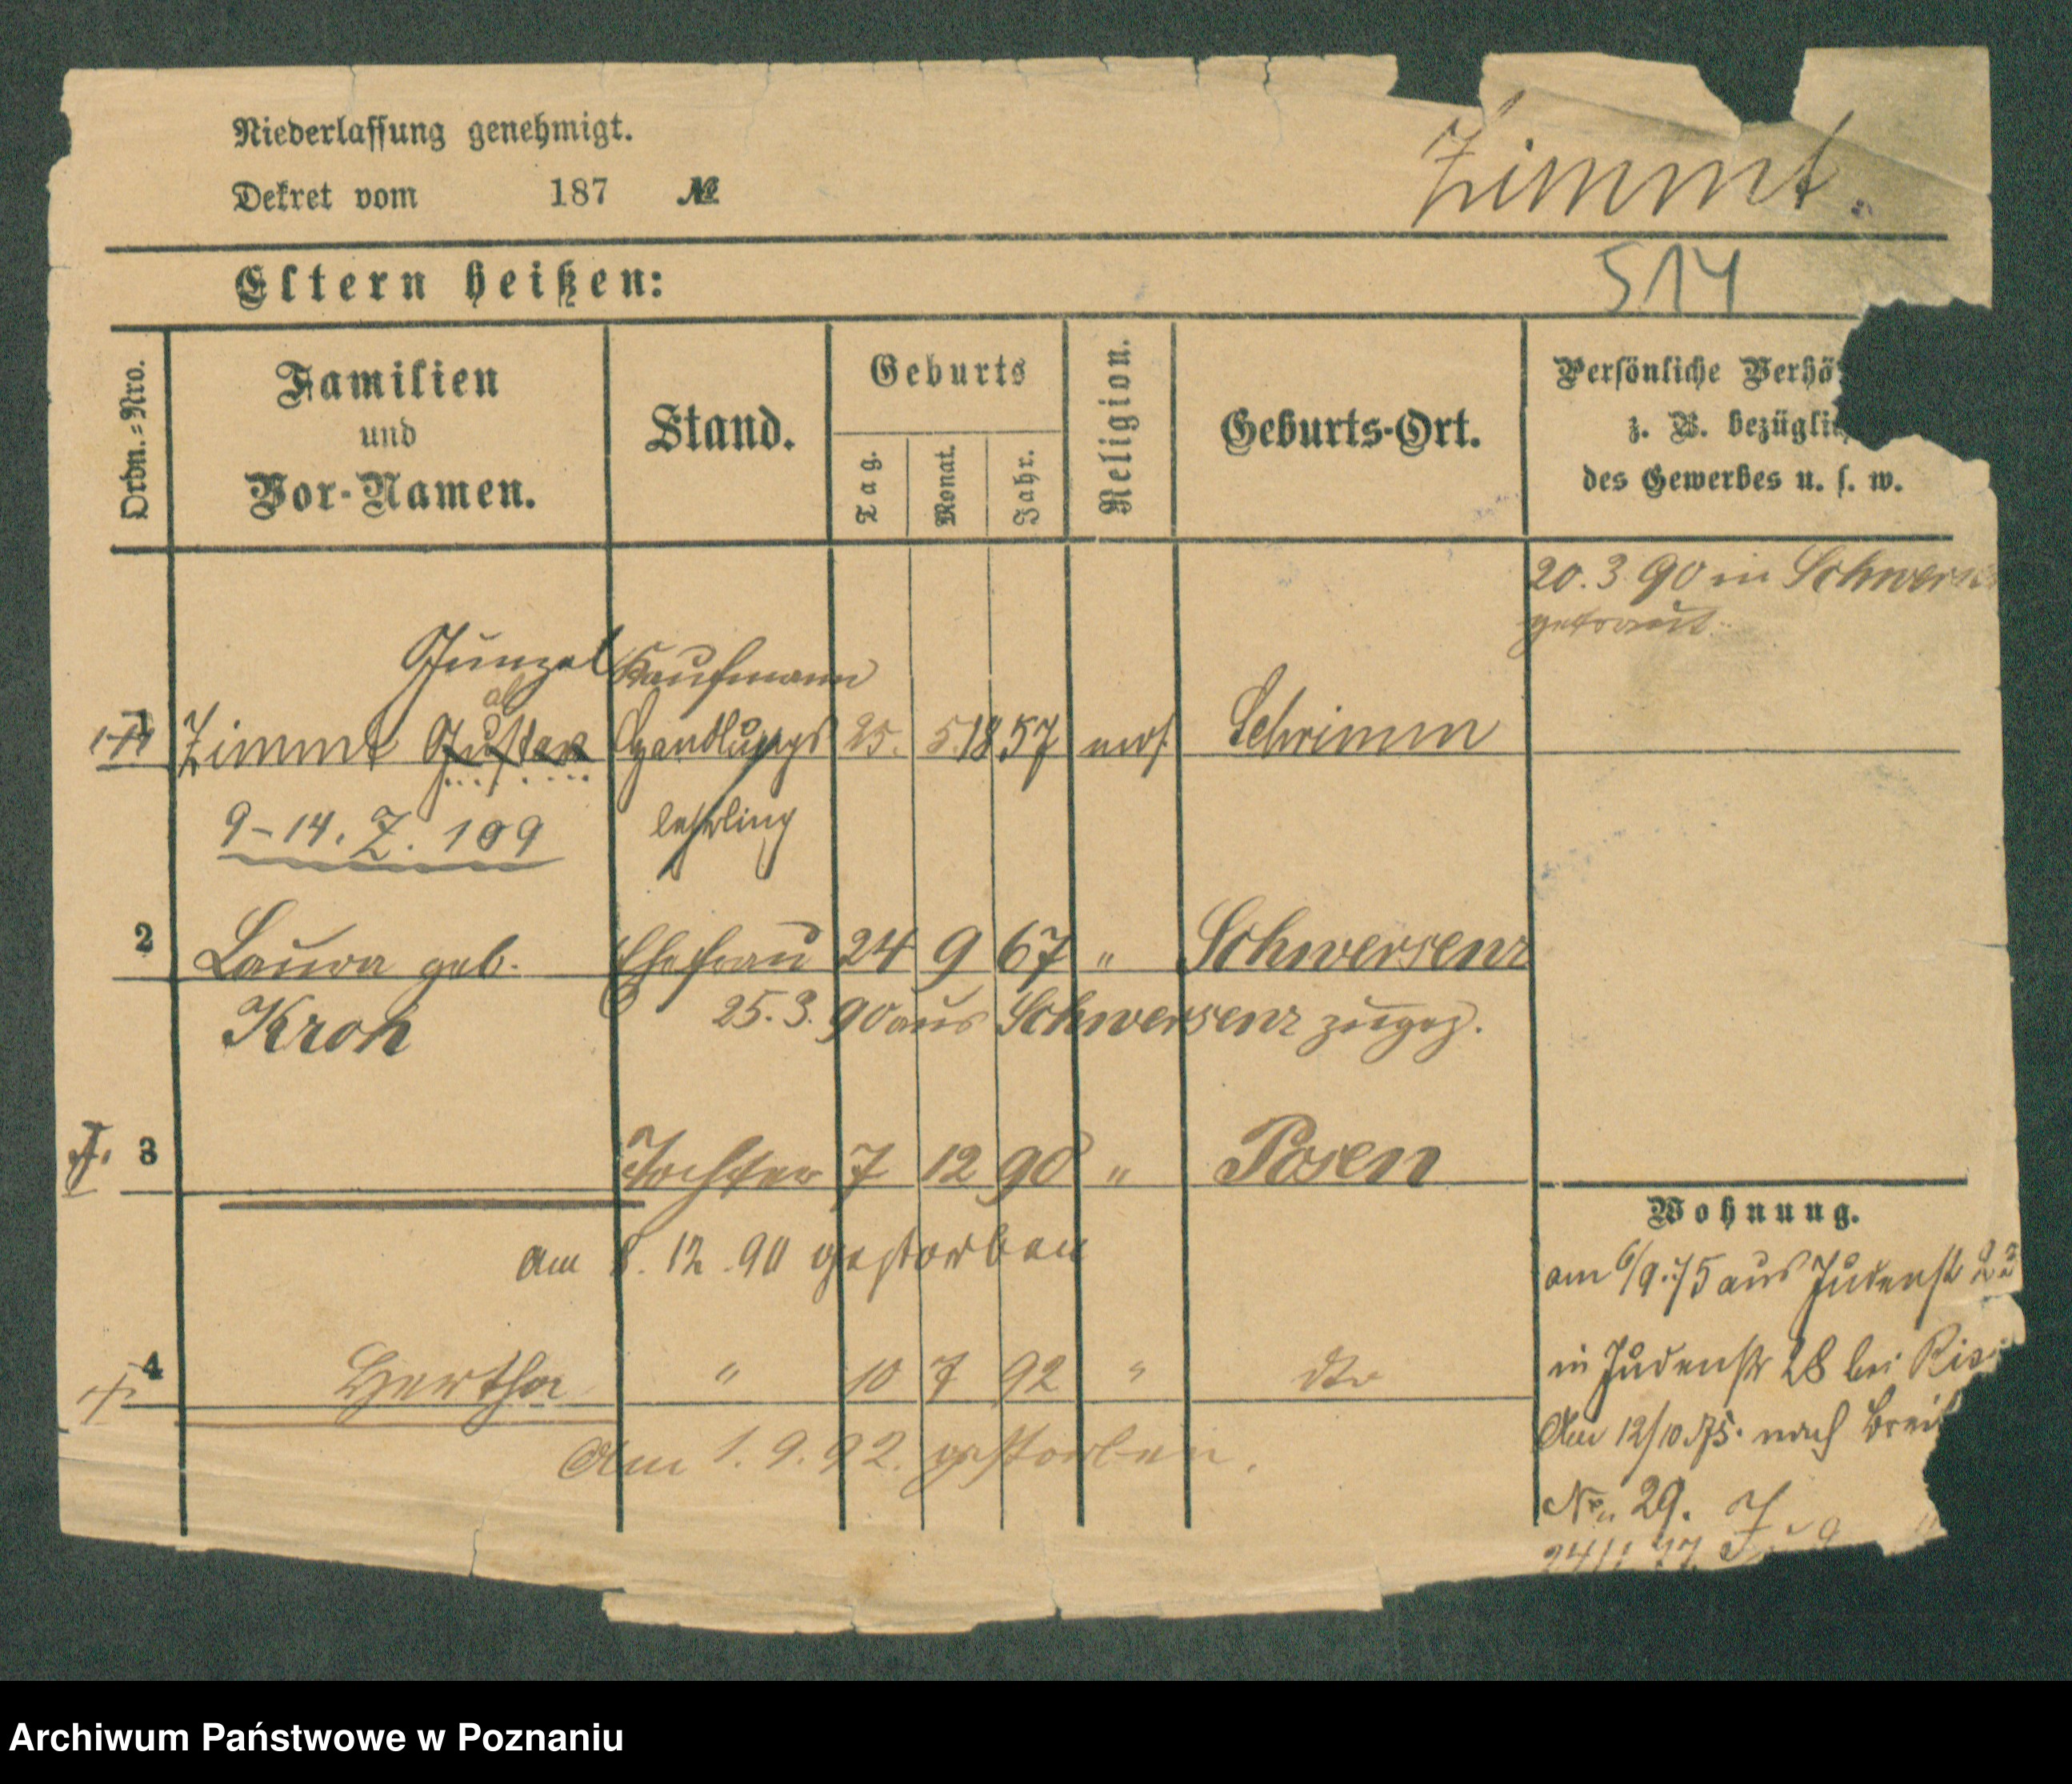 Niederlassung genehmigt.
Dekret vom 187 №
Zimmt.
Eltern heißen:
514
Ordn.-Nro.
Familien
und
Vor-Namen.
Stand.
Geburts
Tag.
Monat.
Jahr.
Religion.
Geburts-Ort.
Persönliche Verhä
z. B. bezüglic
des Gewerbes u. s. w.
20. 3 90 in Schwersen
getraut.
Günzel Kaufmann
1 Zimmt Gustav Handlungs 25. 5. 1857 mos. Schrimm
9-14. Z. 109 lehrling
2 Laura geb. Ehefrau 24 9 67 " Schwersenz
Kroh 25. 3. 90 aus Schwersenz zugez.
3 Tochter 7 12 90 " Posen
am 8. 12. 90 gestorben
4 Hertha " 10 7 92 " dto
Am 1. 9. 92. gestorben.
Wohnung.
am 6/9. 75 aus Judenst
in Judenstr 28 bei
Am 12/10. 75. nach Breit
No. 29.
Archiwum Państwowe w Poznaniu